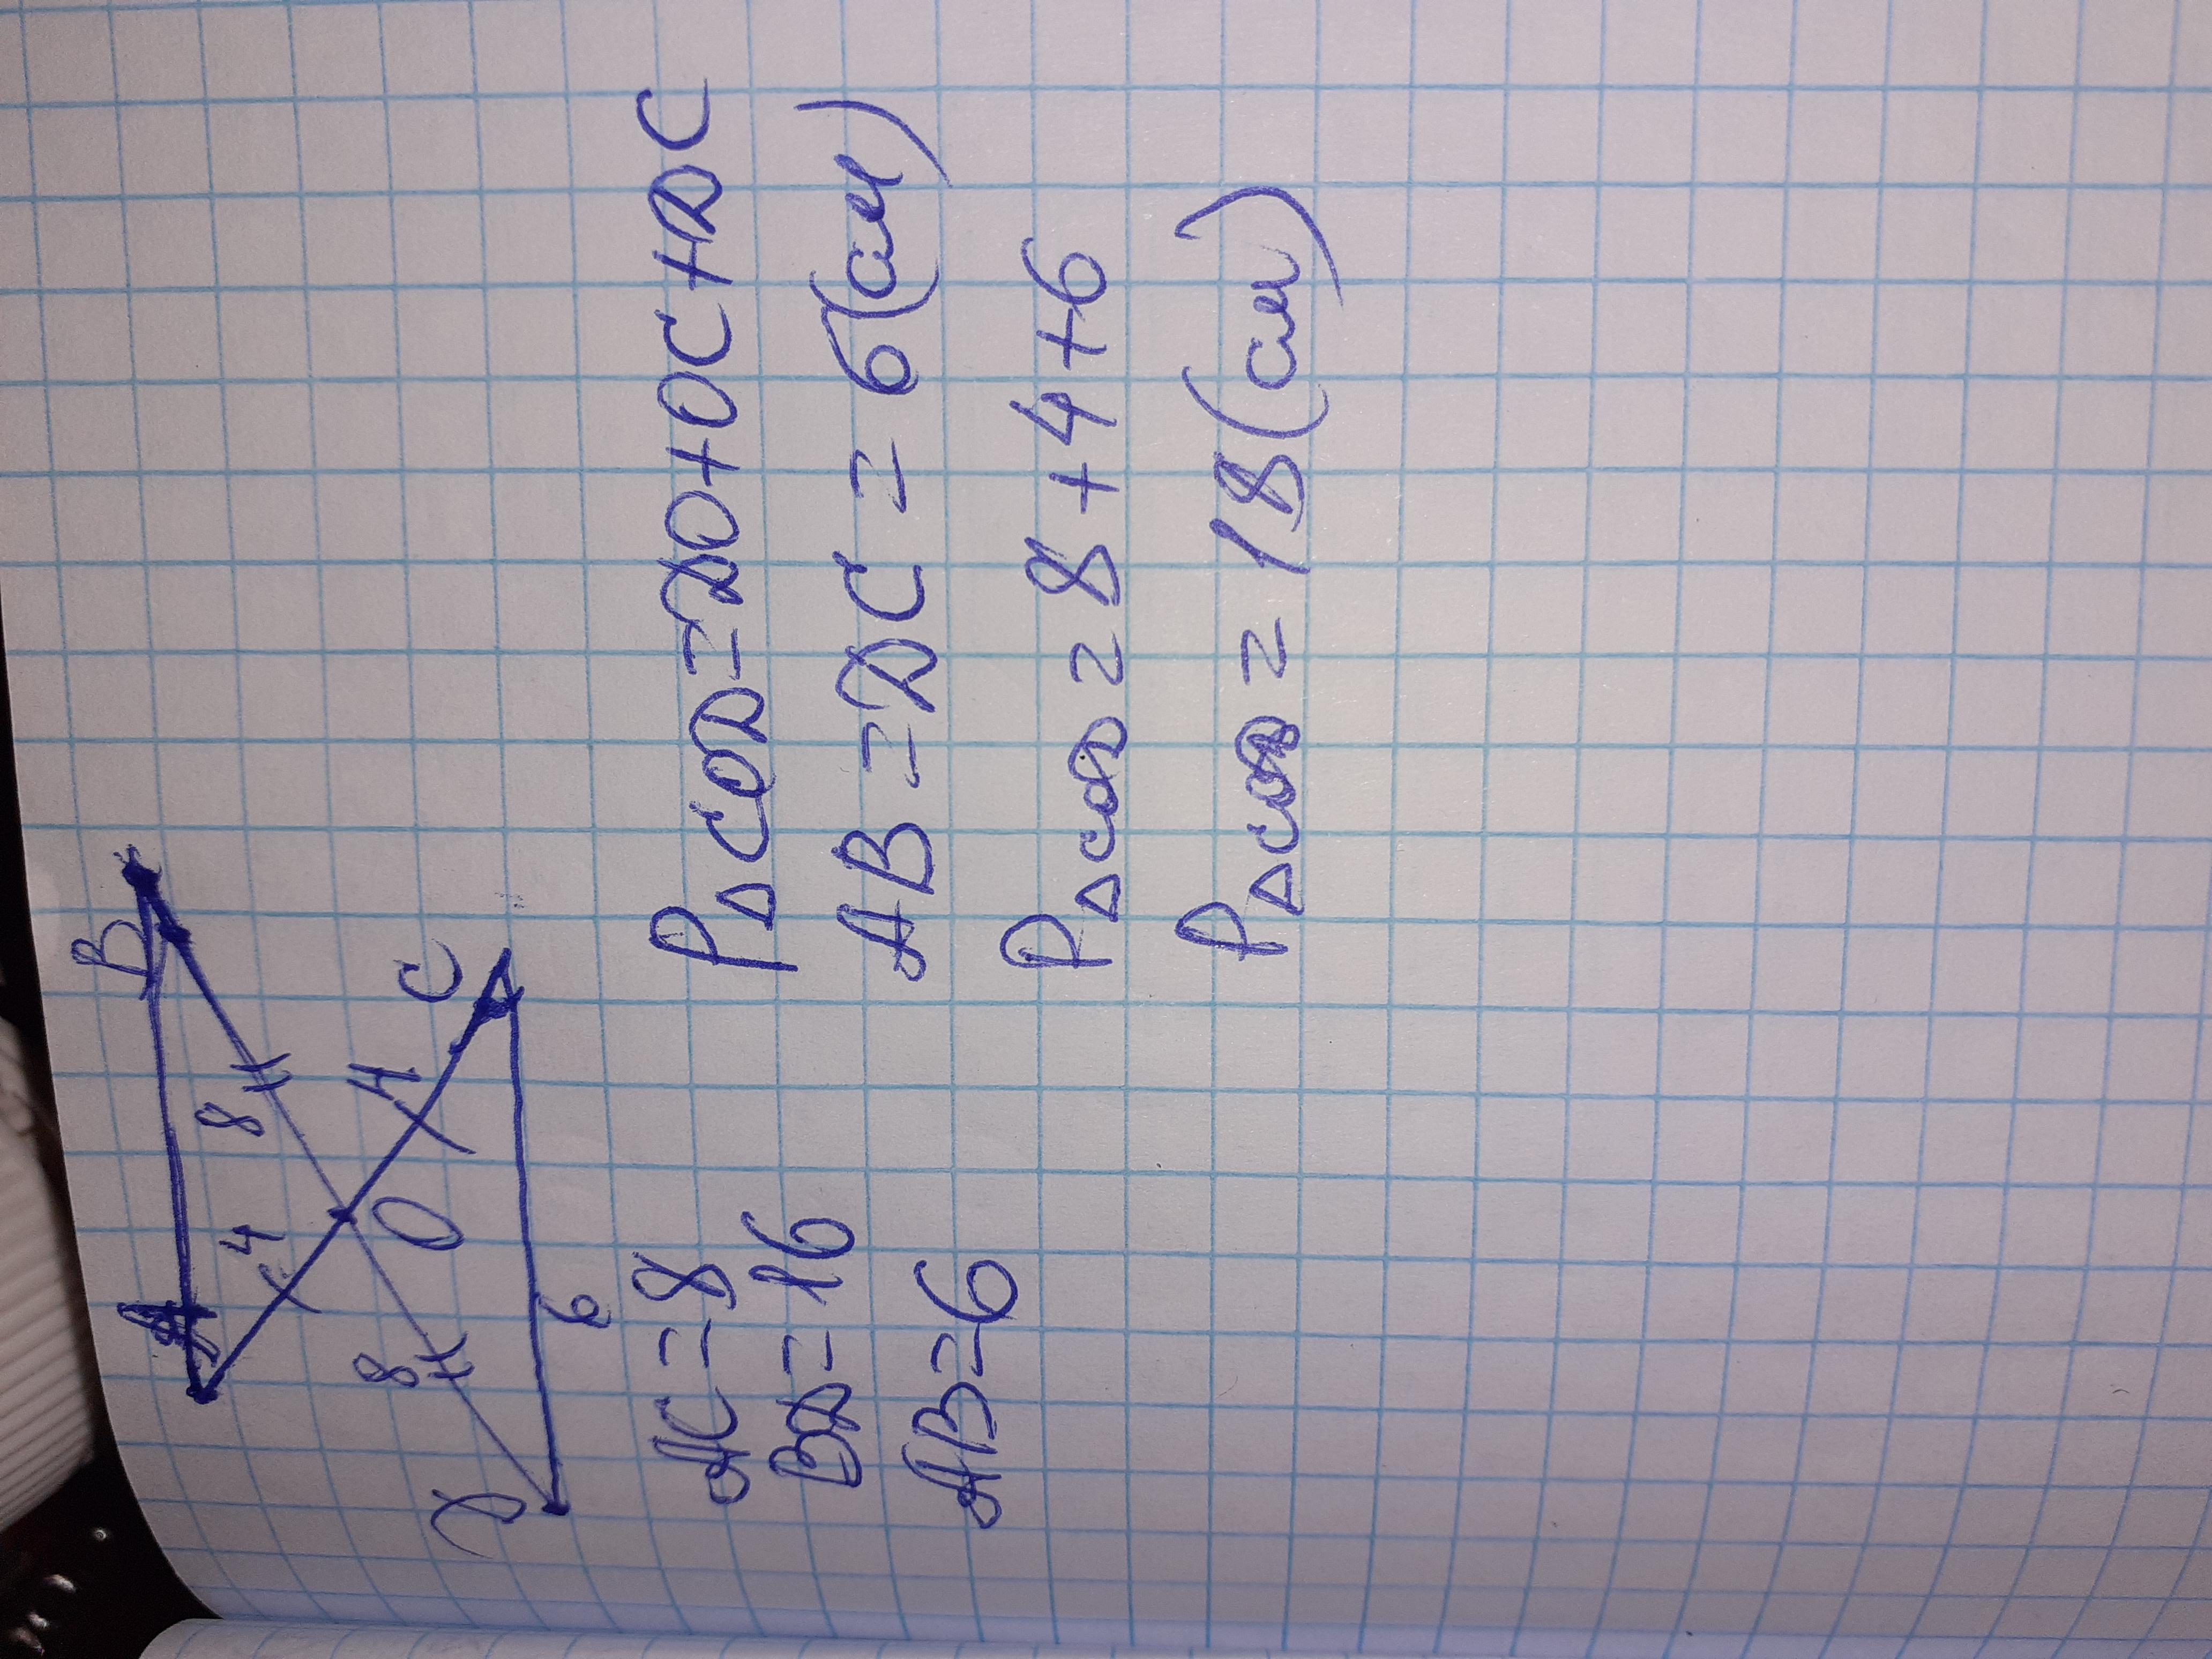 A
B
4
8
O
8
4
D
C
6
AC = 8
BD = 16
AB = 6
P△COD = DO + OC + DC
AB = DC = 6 (см)
P△COD = 8 + 4 + 6
P△COD = 18 (см)